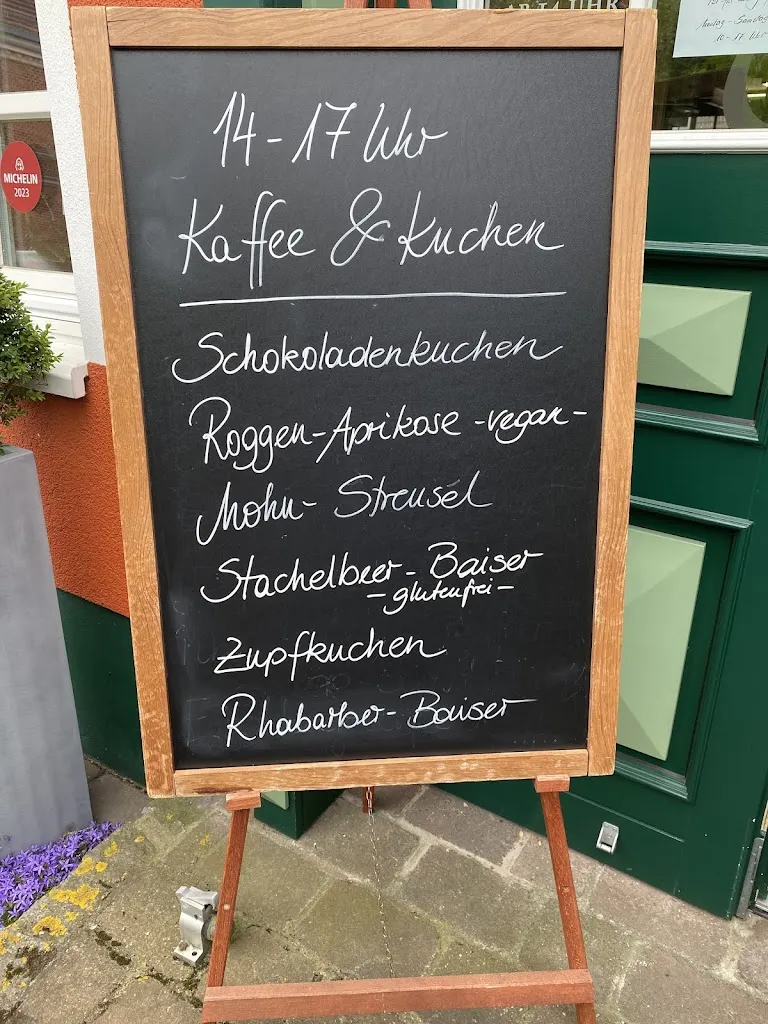 14-17 Uhr
Kaffee & Kuchen
Schokoladenkuchen
Roggen-Aprikose -vegan-
Mohn-Streusel
Stachelbeer-Baiser
-glutenfrei-
Zupfkuchen
Rhabarber-Baiser
MICHELIN
2023
10-17 Uhr